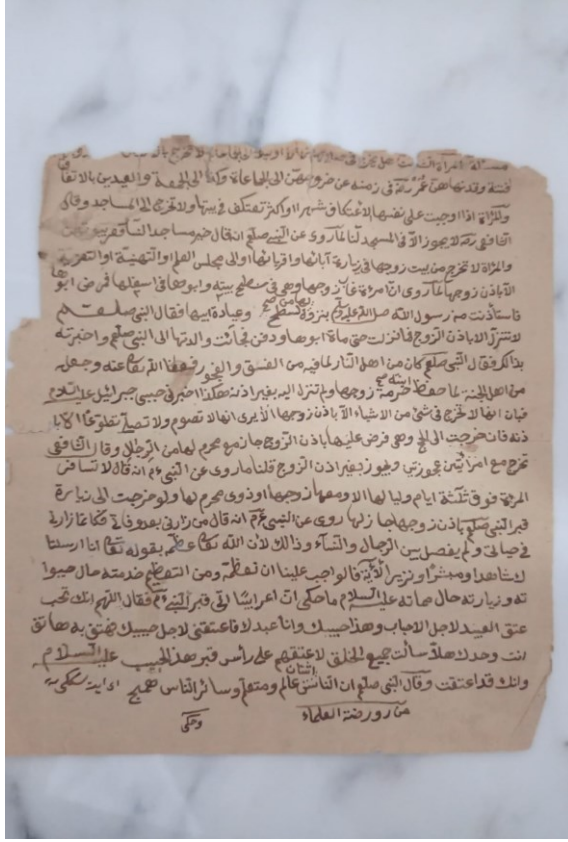 مسئلة المرأة
فتنة وقد نهاهن عمر رضه في زمنه عن خروجهن الى الجماعاة واما الى الجمعة والعيدين بالاتفاق
والمرأة اذا اوجبت على نفسها الاعتكاف شهرا او اكثر تعتكف في بيتها ولا تخرج الى المساجد وقال
الشافعي رح لا يجوز الا في المسجد لنا ما روى عن النبي صلعم انه قال خير مساجد النساء قعر بيوتهن
والمرأة لا تخرج من بيت زوجها في زيارة آبائها واقربائها والى مجلس العلم او التهنية او التعزية
الا باذن زوجها لما روى ان امرأة غاب زوجها وهي في سطح بيته وابوها في اسفلها فمرض ابوها
فاستاذنت من رسول الله صلى الله عليه وسلم بنزولها من سطح وعيادة ابيها فقال النبي صلعم
لا تنزل الا باذن الزوج فما نزلت حتى مات ابوها ودفن فجائت والدتها الى النبي صلعم واخبرته
بذالك فقال النبي صلعم كان من اهل النار لما فيه من الفسق والفجور فعفا الله تعا عنه وجعله
من اهل الجنة لما حفظ ابنته حرمة زوجها ولم تنزل اليه بغير اذنه هكذا اخبرني حبيبي جبرائيل عليه السلام
فبان انها لا تخرج في شئ من الاشياء الا باذن زوجها الا يرى انها لا تصوم ولا تصلي تطوعا الا با
ذنه فان خرجت الى الحج وهي فرض عليها باذن الزوج جاز مع محرم لها من الرجال وقال الشافعي
تخرج مع امرأتين عجوزتين ويجوز بغير اذن الزوج قلنا ما روى عن النبي عم انه قال لا تسافر
المرأة فوق ثلثة ايام ولياليها الا ومعها زوجها او ذوى محرم لها ولو خرجت الى زيارة
قبر النبي صلعم باذن زوجها جاز لها روى عن النبي عم انه قال من زارني بعد وفاتي فكانما زارني
في حياتي ولم يفصل بين الرجال والنسآء وذالك لان الله تعا عظمه بقوله تعا انا ارسلنا
ك شاهدا ومبشرا ونذيرا الآية فالواجب علينا ان نعظمه ومن التعظيم خدمته حال حيوا
ته وزيارته حال مماته عليه السلام ما حكى ان اعرابيا اتى قبر النبي عم فقال اللهم انك تحب
عتق العبيد لاجل الاحباب وهذا حبيبك وانا عبدك فاعتقني لاجل حبيبك فهتف به هاتف
انت وحدك هلا سالت جميع الخلق لاعتقهم على رأس قبر هذا الحبيب عليه السلام
وانك قد اعتقت وقال النبي صلعم ان الناس اثنان عالم ومتعلم وسائر الناس همج
من روضة العلماء
وحكى